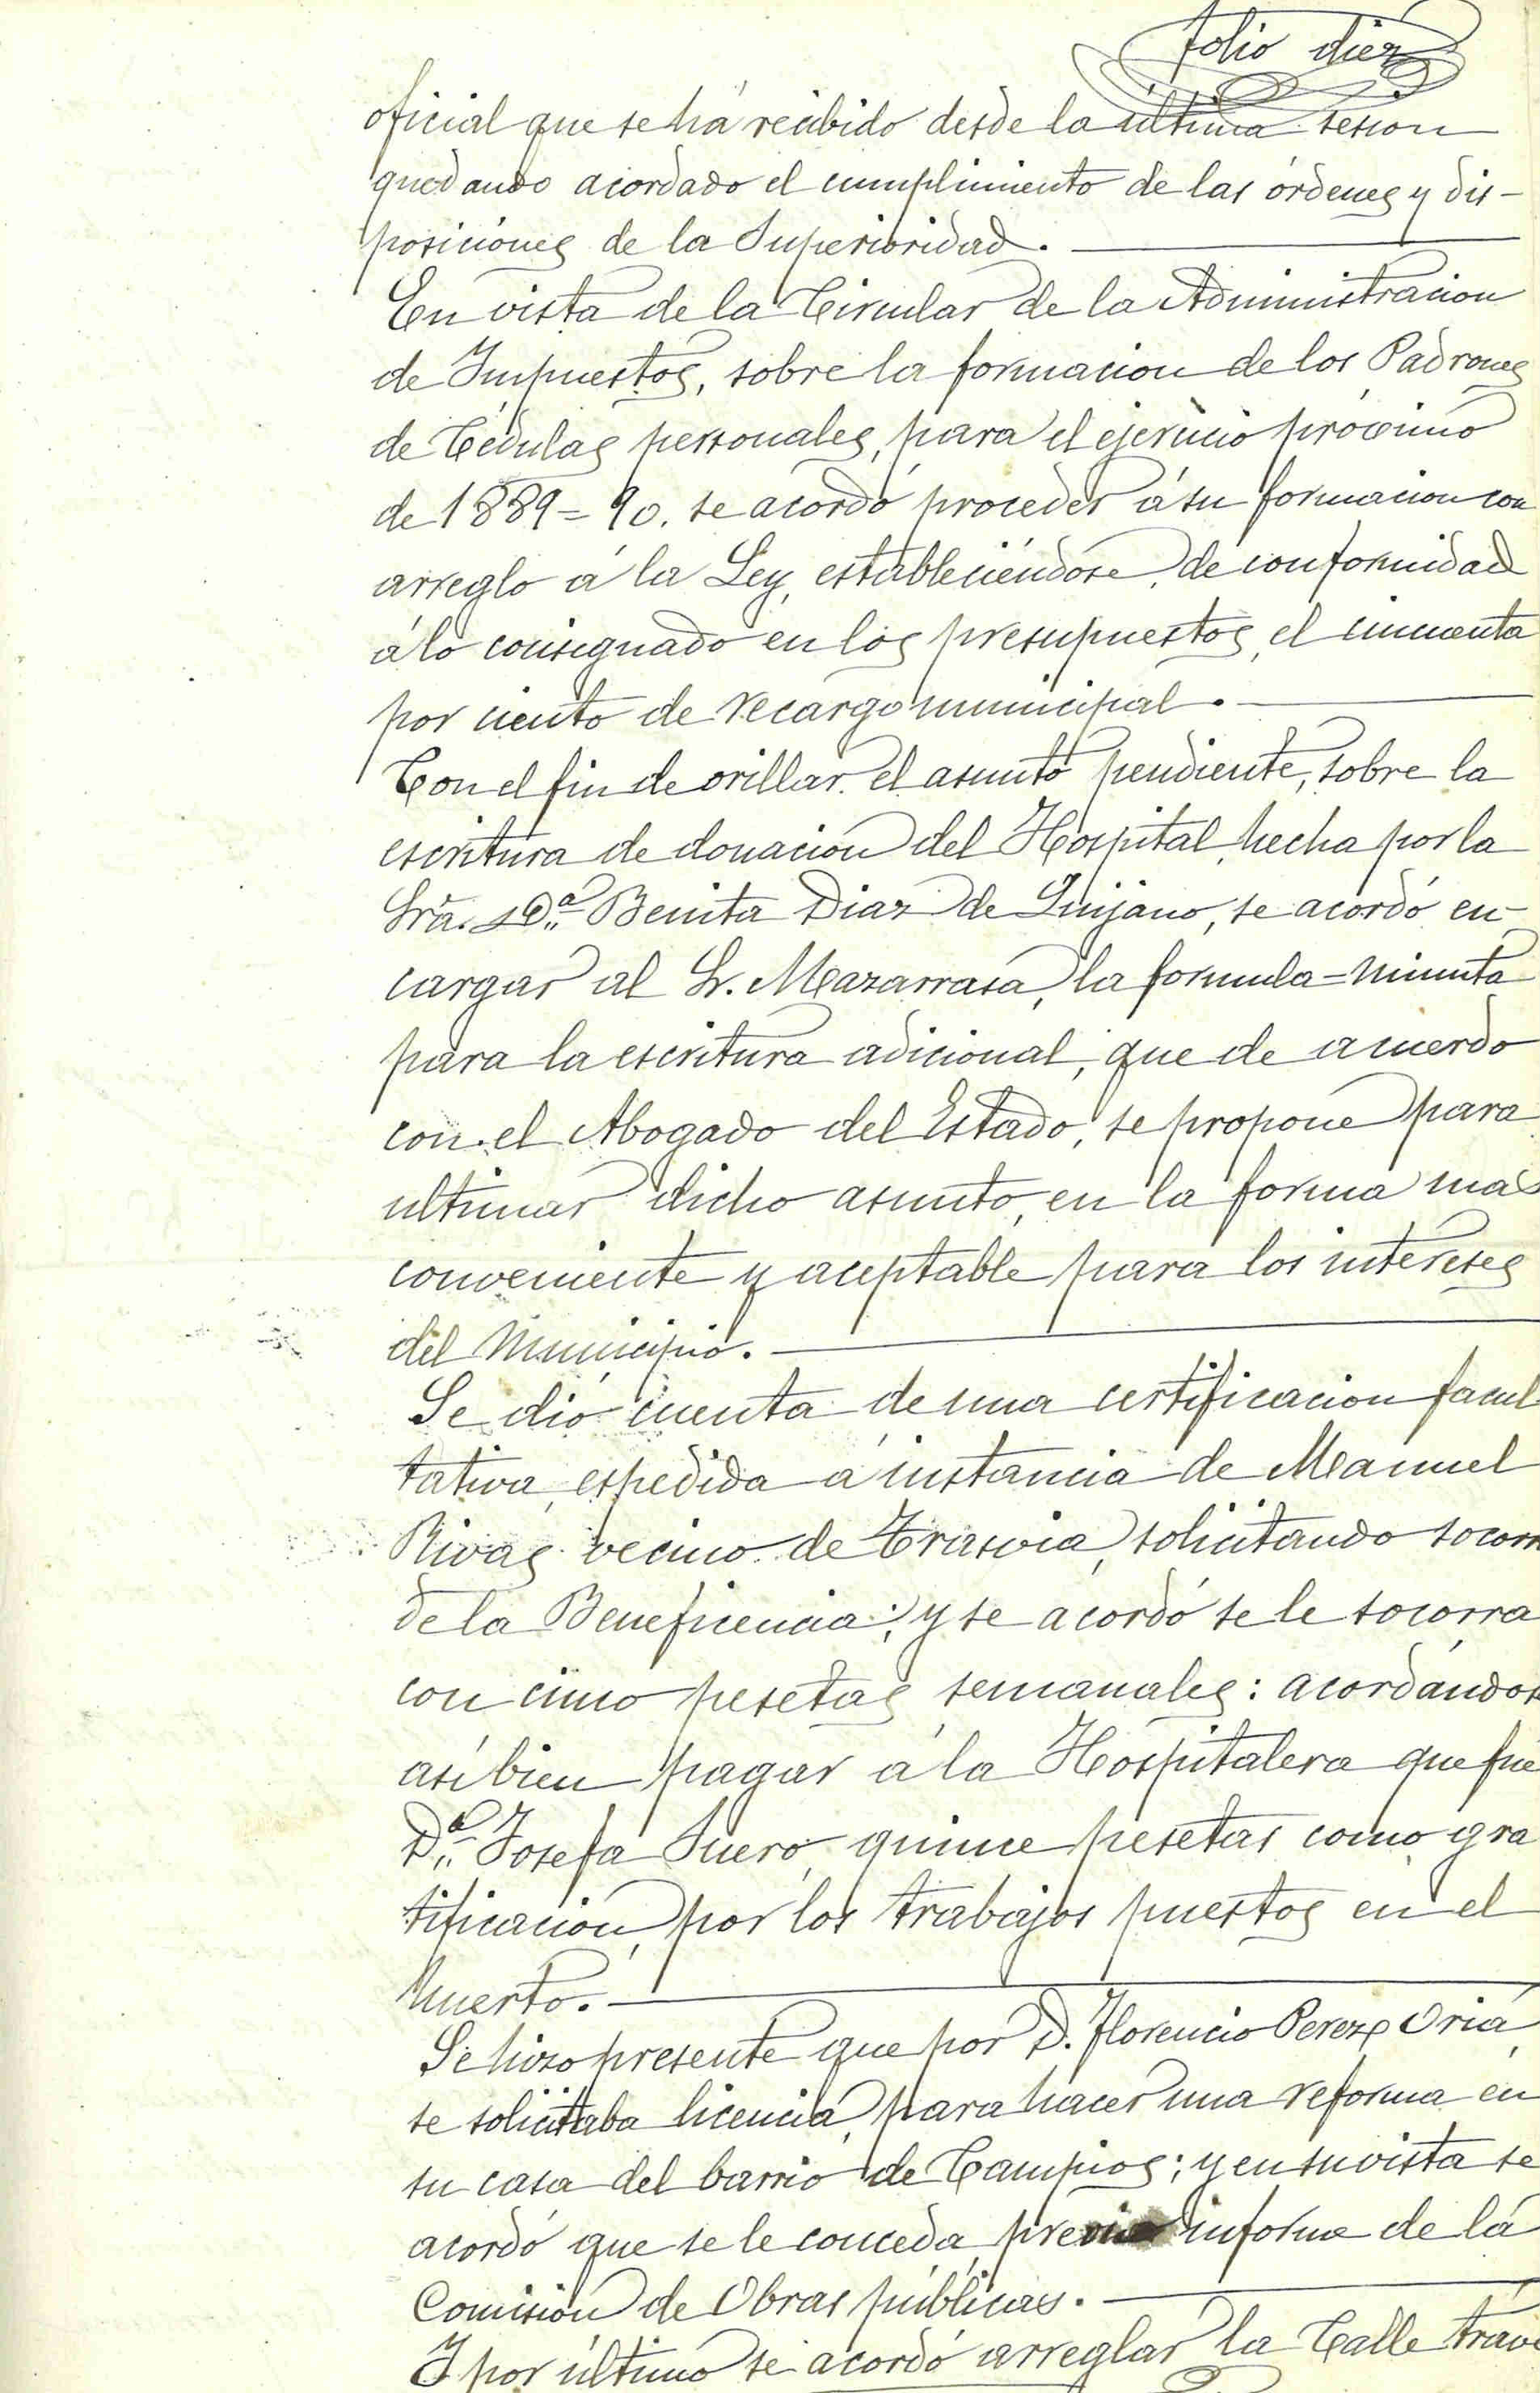 folio diez
oficial que se há recibido desde la última sesion
quedando acordado el cumplimiento de las órdenes y dis-
posiciones de la Superioridad.
En vista de la Circular de la Administracion
de Impuestos, sobre la formacion de los Padrones
de Cédulas personales, para el ejercicio próximo
de 1889=90. se acordó proceder á su formacion con
arreglo á la Ley, estableciéndose, de conformidad
á lo consignado en los presupuestos, el cincuenta
por ciento de recargo municipal.
Con el fin de orillar el asunto pendiente, sobre la
escritura de donacion del Hospital, hecha por la
Sra. Dª Benita Diaz de Quijano, se acordó en-
cargar al Sr. Mazarrasa, la formula=minuta
para la escritura adicional, que de acuerdo
con el Abogado del Estado, se propone para
ultimar dicho asunto, en la forma mas
conveniente y aceptable para los intereses
del Municipio.
Se dió cuenta de una certificacion facul
tativa, espedida á instancia de Manuel
Rivas vecino de Trasvia, solicitando socorr
de la Beneficencia; y se acordó se le socorra
con cinco pesetas semanales: acordándos
así bien pagar á la Hospitalera que fué
Dª Josefa Suero, quince pesetas como gra
tificacion, por los trabajos puestos en el
huerto.
Se hizo presente que por D. Florencio Perez Oria,
se solicitaba licencia, para hacer una reforma en
su casa del barrio de Campios; y en su vista se
acordó que se le conceda, previo informe de la
Comision de Obras públicas.
Y por último se acordó arreglar la Calle trave